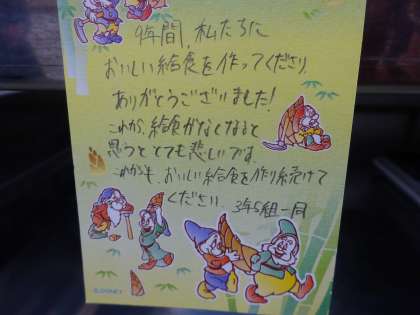 9年間、私たちに
おいしい給食を作ってくださり、
ありがとうございました!
これから、給食がなくなると
思うととても悲しいです。
これからも、おいしい給食を作り続けて
ください。 3年5組一同
©DISNEY